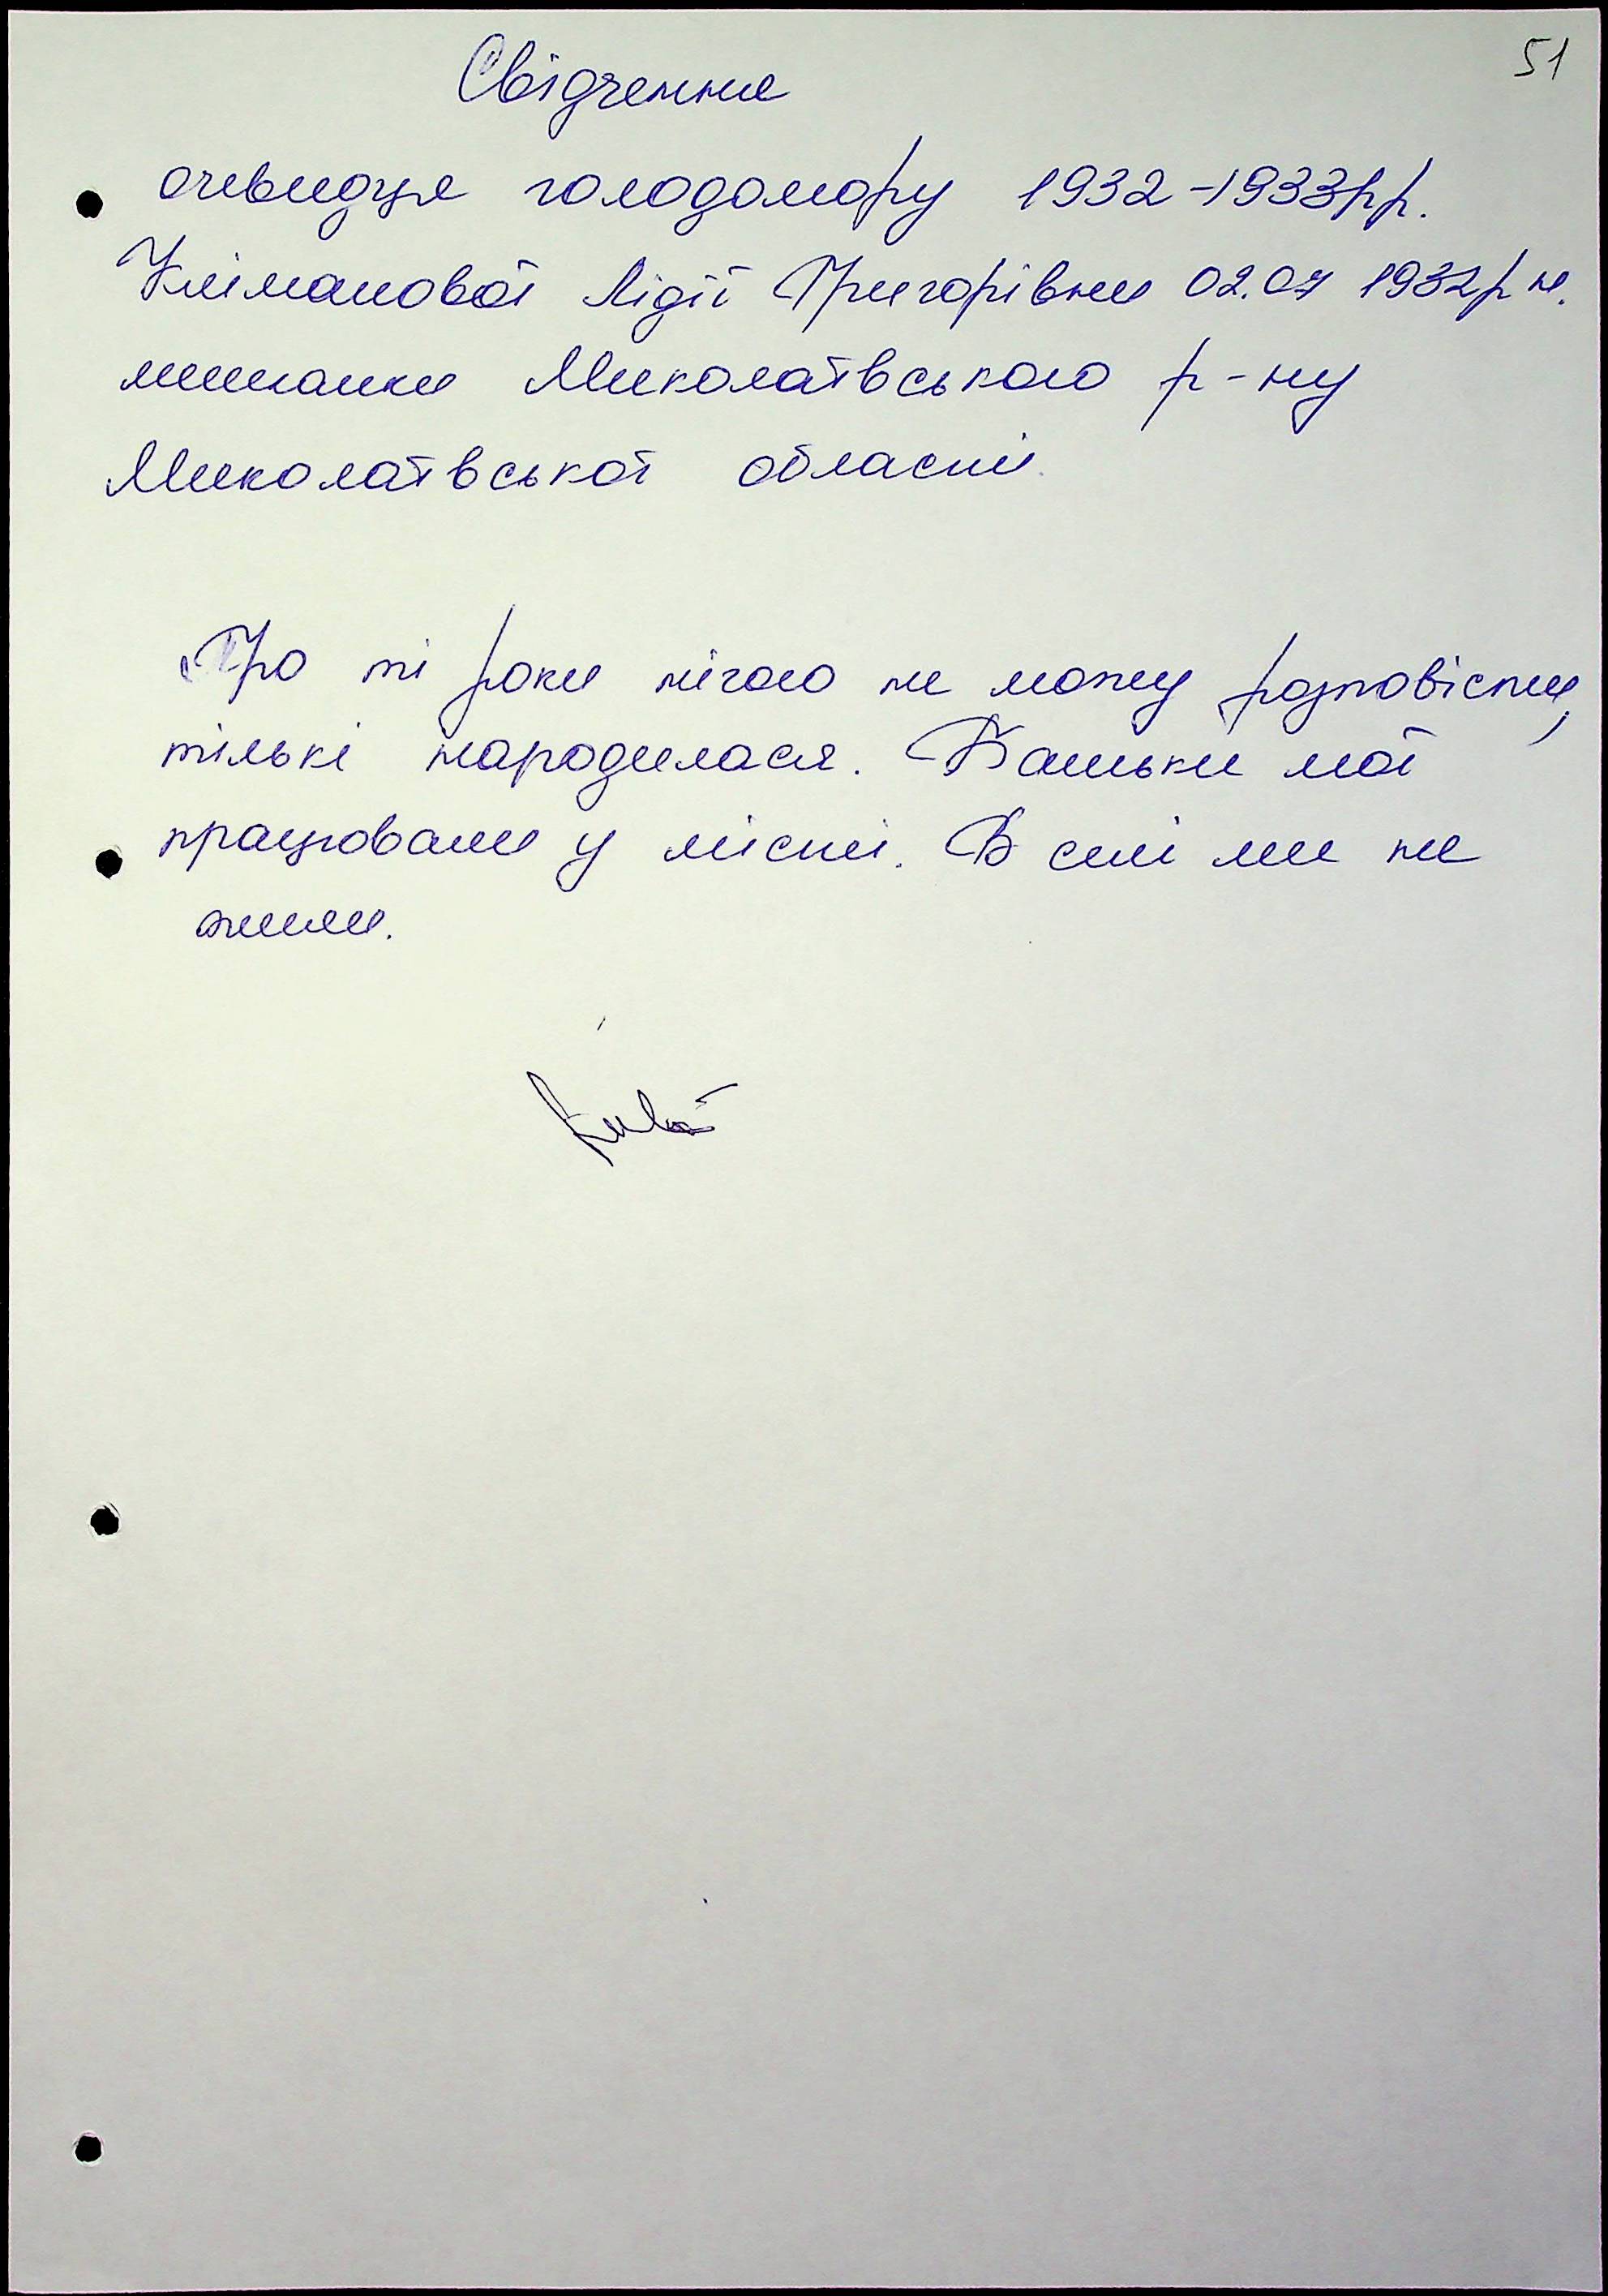 51
Свідчення
очевидця голодомору 1932-1933рр.
Клімакової Лідії Григорівни 02.07 1932р н.
мешканки Миколаївського р-ну
Миколаївської області.
Про ті роки нічого не можу розповісти,
тількі народилася. Батьки мої
працювали у місті. В селі ми не
жили.